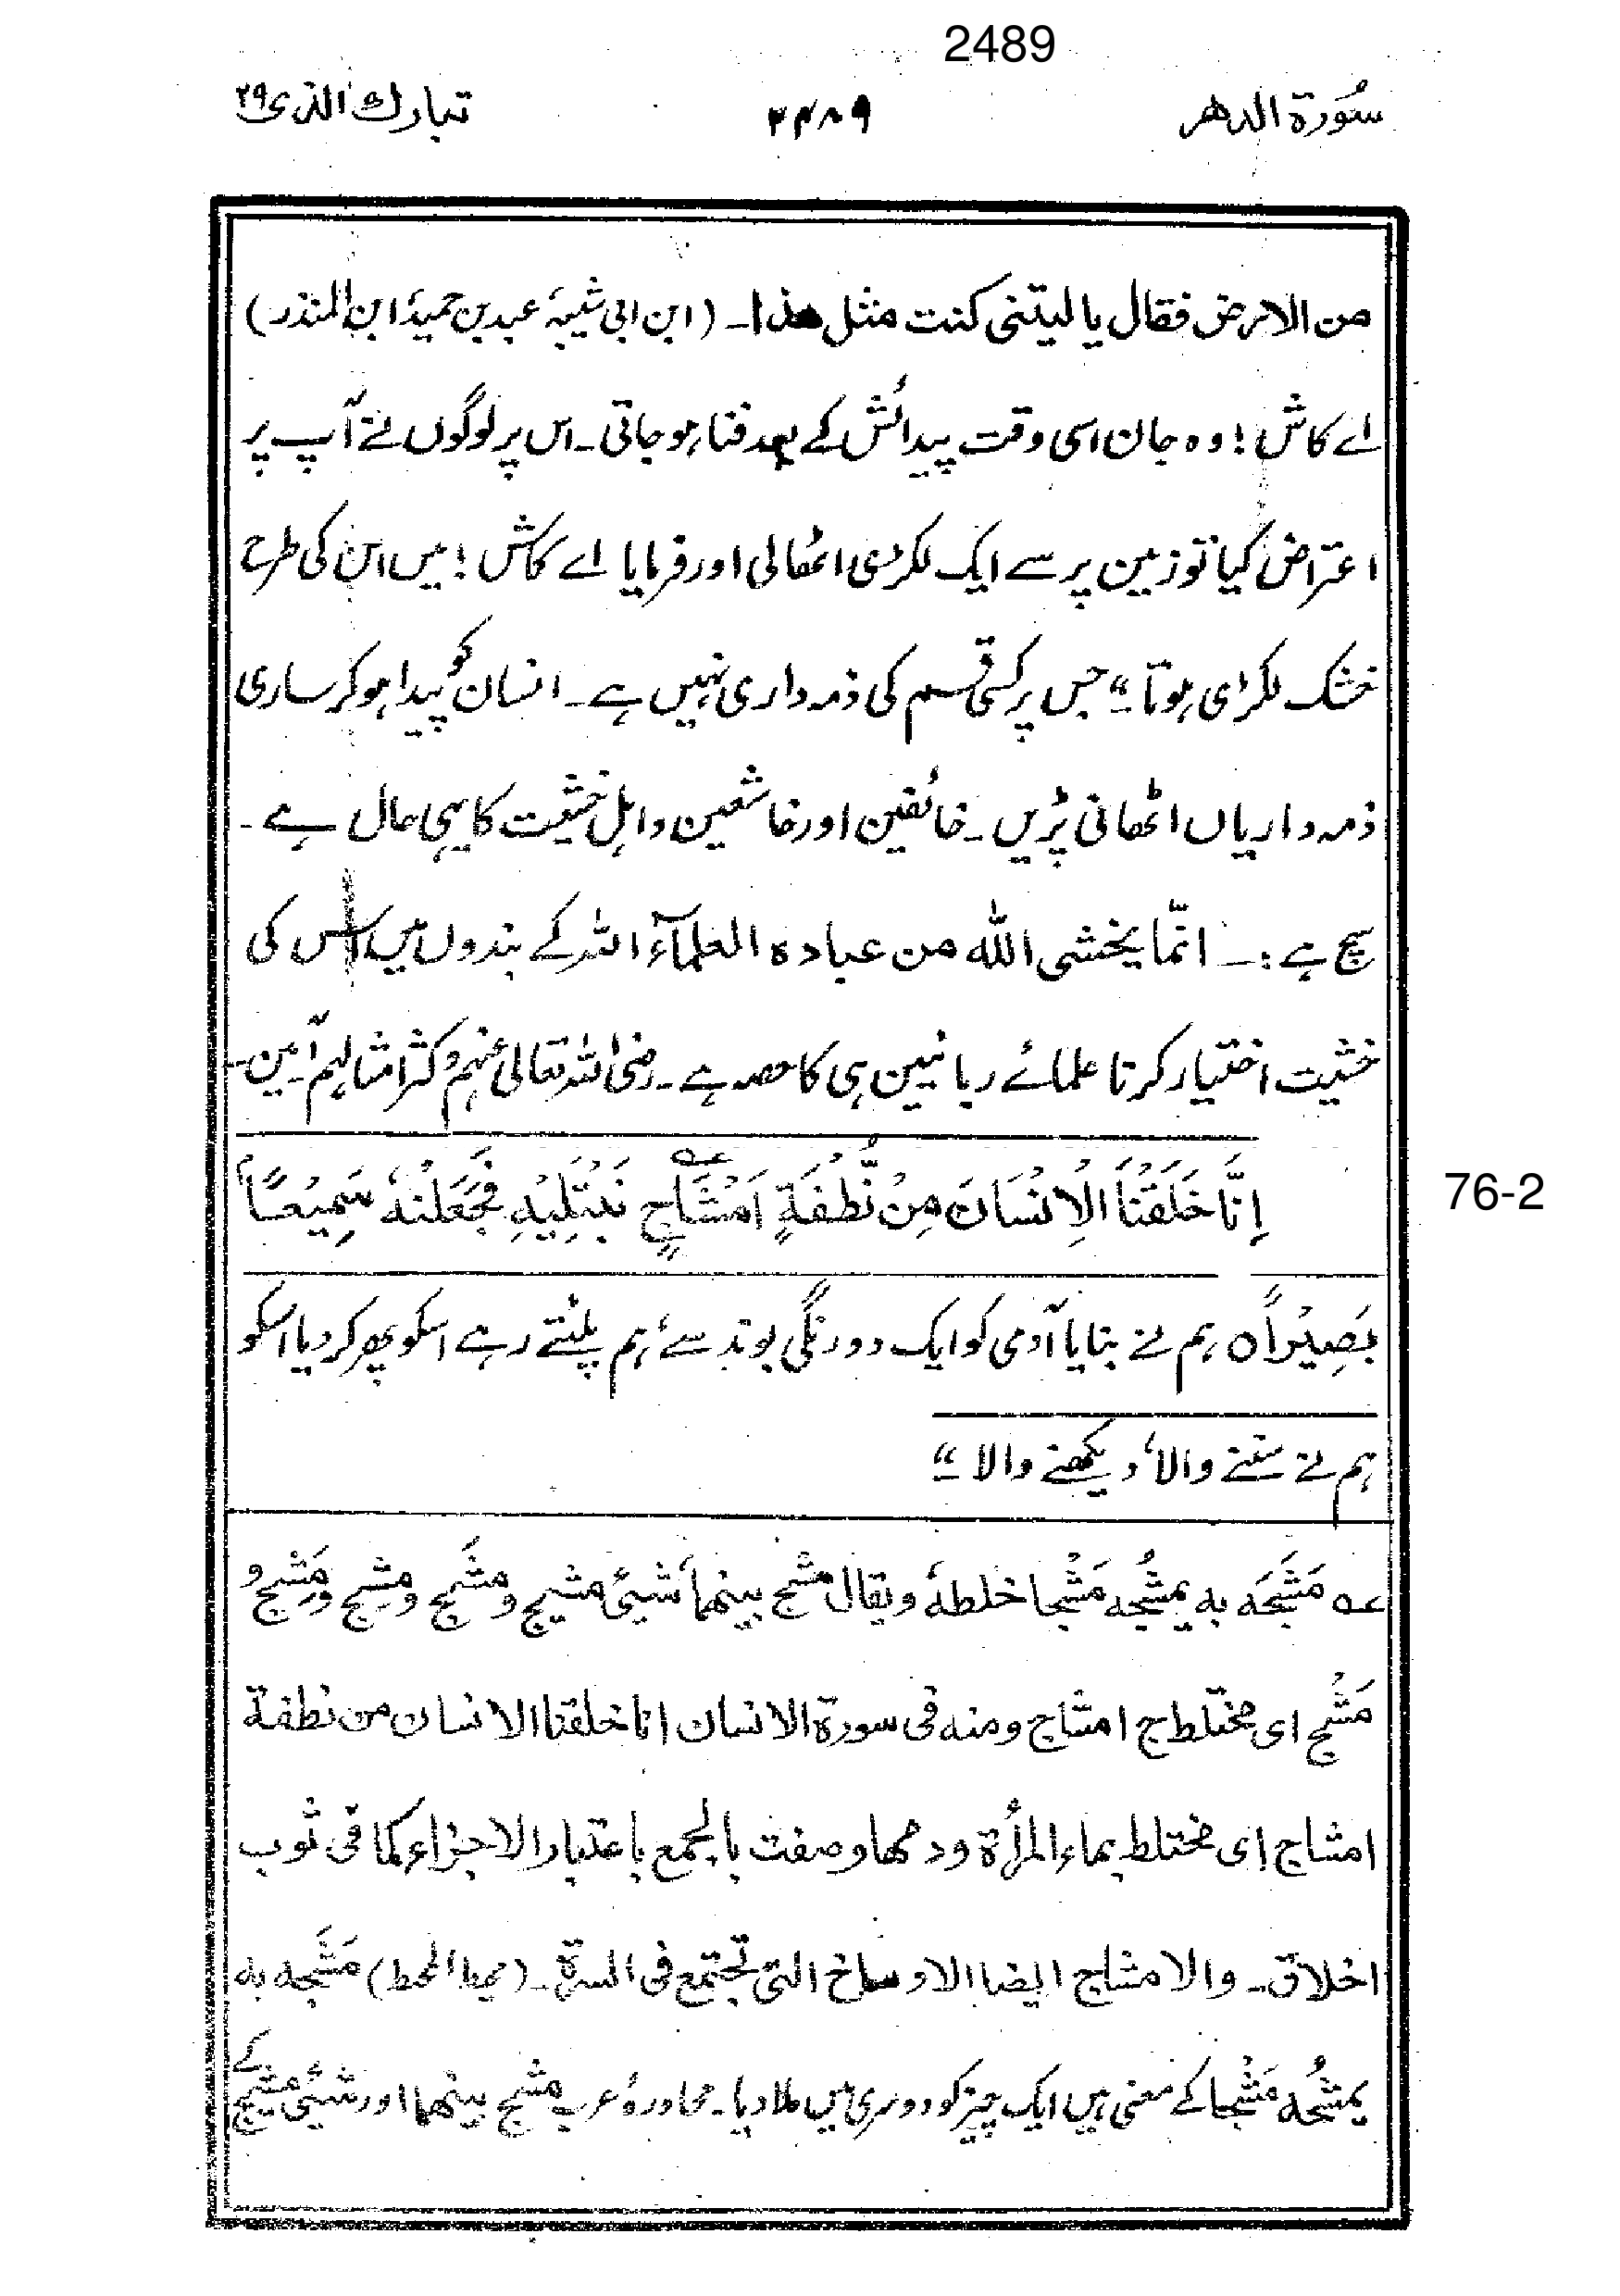 2489
سُورة الدهر ۲۴۸۹ تبارك الذی ۲۹
من الارض فقال یا لیتنی کنت مثل هذا۔ (ابن ابی شیبہ، عبد بن حمید، ابن المنذر)
اے کاش! وہ جان اسی وقت پیدائش کے بعد فنا ہو جاتی۔ اس پر لوگوں نے آپ پر
اعتراض کیا تو زمین پر سے ایک لکڑی اٹھالی اور فرمایا اے کاش! میں اس کی طرح
خشک لکڑی ہوتا“ جس پر کسی قسم کی ذمہ داری نہیں ہے۔ انسان کو پیدا ہو کر ساری
ذمہ داریاں اٹھانی پڑیں۔ خائفین اور خاشعین و اہل خشیت کا یہی حال ہے۔
سچ ہے :۔ انمّا یخشی اللّٰه من عباده العلمآء اللہ کے بندوں میں اس کی
خشیت اختیار کرنا علمائے ربانیین ہی کا حصہ ہے۔ رضی اللہ تعالیٰ عنہم وکثر امثالہم آمین۔
اِنَّا خَلَقْنَا الْاِنْسَانَ مِنْ نُّطْفَةٍ اَمْشَاجٍ نَّبْتَلِيْهِ فَجَعَلْنٰهُ سَمِيْعًاۢ
76-2
بَصِيْرًا ○ ہم نے بنایا آدمی کو ایک دورنگی بوند سے، ہم پلٹتے رہے اسکو پھر کر دیا اسکو
ہم نے سننے والا، دیکھنے والا“
عہ مَشَجَه به یمشُجُه مَشْجا خلطهٗ ویقال مشج بینهما، شیئٌ مشیج ومشَج ومِشج ومَشِجٌ و
مَشْج ای مختلط ج امشاج ومنه فی سورة الانسان انا خلقنا الانسان من نطفة
امشاج ای مختلط بماء المرأة ودمها وصفت بالجمع باعتبار الاجزاء کما فی ثوب
اخلاق۔ والامشاج ایضا الاوساخ التی تجتمع فی السرة۔ (محیط المحیط) مَشَجه به
یمشُجُه مَشْجا کے معنی ہیں ایک چیز کو دوسری میں ملا دیا۔ محاورۂ عرب مشج بینهما اور شیئٌ مشیج کے